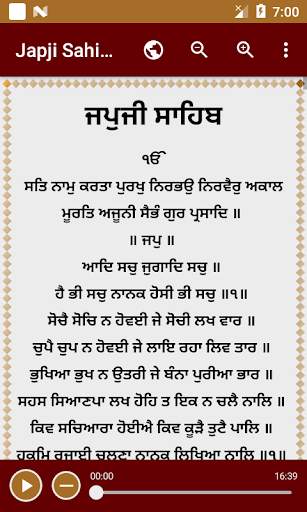 7:00
Japji Sahi...
ਜਪੁਜੀ ਸਾਹਿਬ
ੴ
ਸਤਿ ਨਾਮੁ ਕਰਤਾ ਪੁਰਖੁ ਨਿਰਭਉ ਨਿਰਵੈਰੁ ਅਕਾਲ
ਮੂਰਤਿ ਅਜੂਨੀ ਸੈਭੰ ਗੁਰ ਪ੍ਰਸਾਦਿ ॥
॥ ਜਪੁ ॥
ਆਦਿ ਸਚੁ ਜੁਗਾਦਿ ਸਚੁ ॥
ਹੈ ਭੀ ਸਚੁ ਨਾਨਕ ਹੋਸੀ ਭੀ ਸਚੁ ॥੧॥
ਸੋਚੈ ਸੋਚਿ ਨ ਹੋਵਈ ਜੇ ਸੋਚੀ ਲਖ ਵਾਰ ॥
ਚੁਪੈ ਚੁਪ ਨ ਹੋਵਈ ਜੇ ਲਾਇ ਰਹਾ ਲਿਵ ਤਾਰ ॥
ਭੁਖਿਆ ਭੁਖ ਨ ਉਤਰੀ ਜੇ ਬੰਨਾ ਪੁਰੀਆ ਭਾਰ ॥
ਸਹਸ ਸਿਆਣਪਾ ਲਖ ਹੋਹਿ ਤ ਇਕ ਨ ਚਲੈ ਨਾਲਿ ॥
ਕਿਵ ਸਚਿਆਰਾ ਹੋਈਐ ਕਿਵ ਕੂੜੈ ਤੁਟੈ ਪਾਲਿ ॥
ਹੁਕਮਿ ਰਜਾਈ ਚਲਣਾ ਨਾਨਕ ਲਿਖਿਆ ਨਾਲਿ ॥੧॥
00:00
16:39